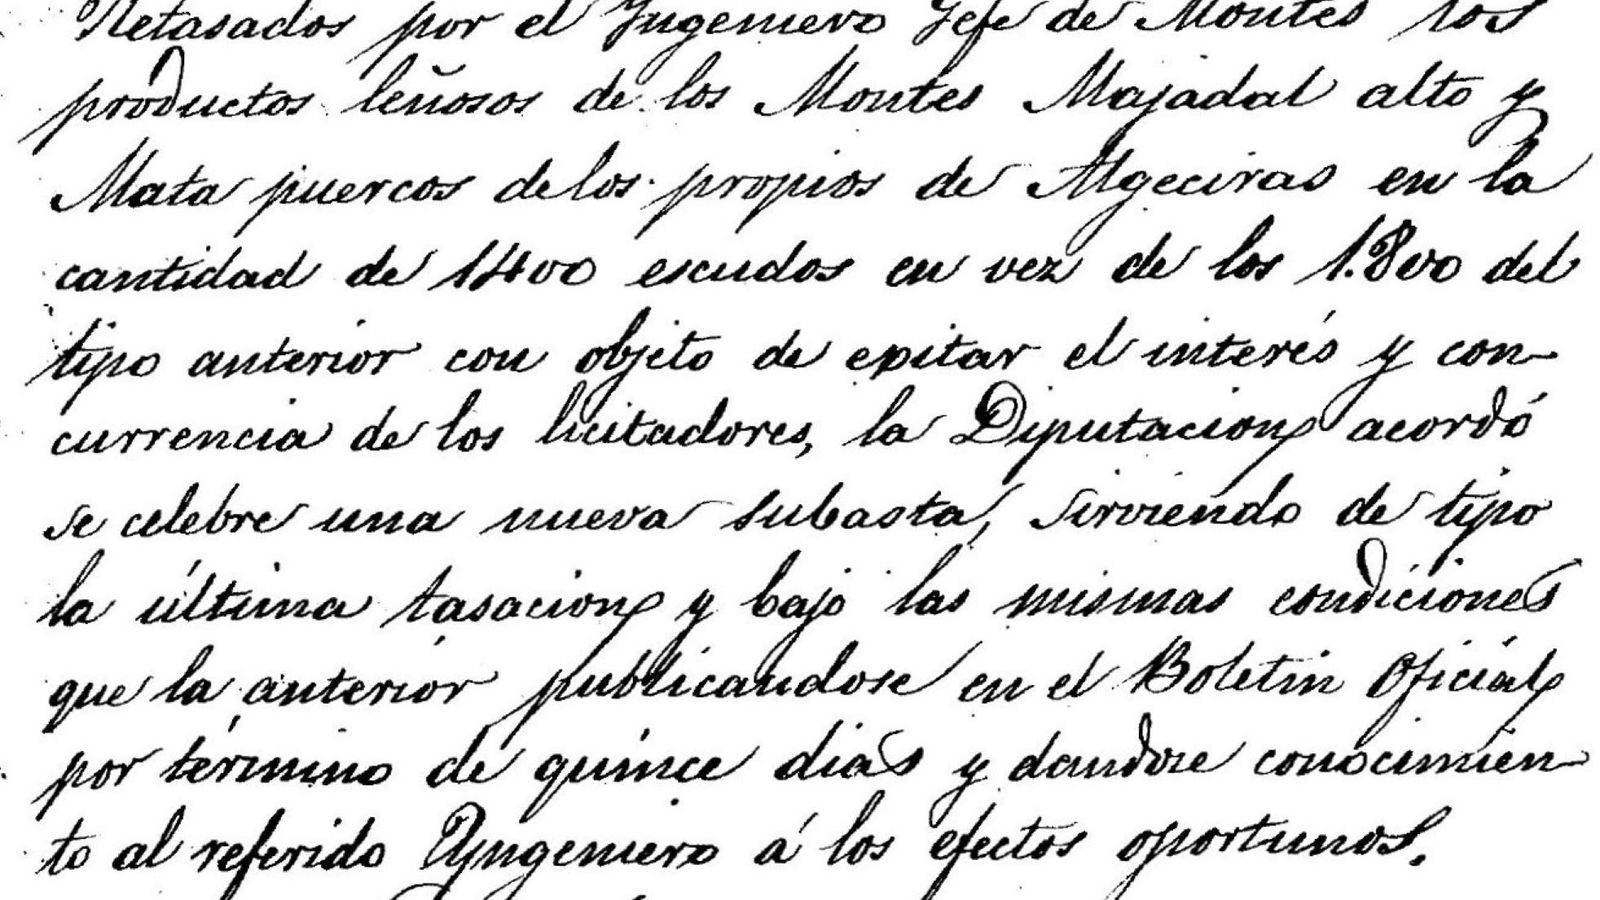 Retasados por el Yngeniero Gefe de Montes los
productos leñosos de los Montes Majadal alto y
Mata puercos de los propios de Algeciras en la
cantidad de 1400 escudos en vez de los 1.800 del
tipo anterior con objeto de exitar el interés y con-
currencia de los licitadores, la Diputacion acordó
se celebre una nueva subasta, sirviendo de tipo
la última tasacion y bajo las mismas condiciones
que la anterior publicandose en el Boletin Oficial
por término de quince dias y dandose conocimien
to al referido Yngeniero á los efectos oportunos.